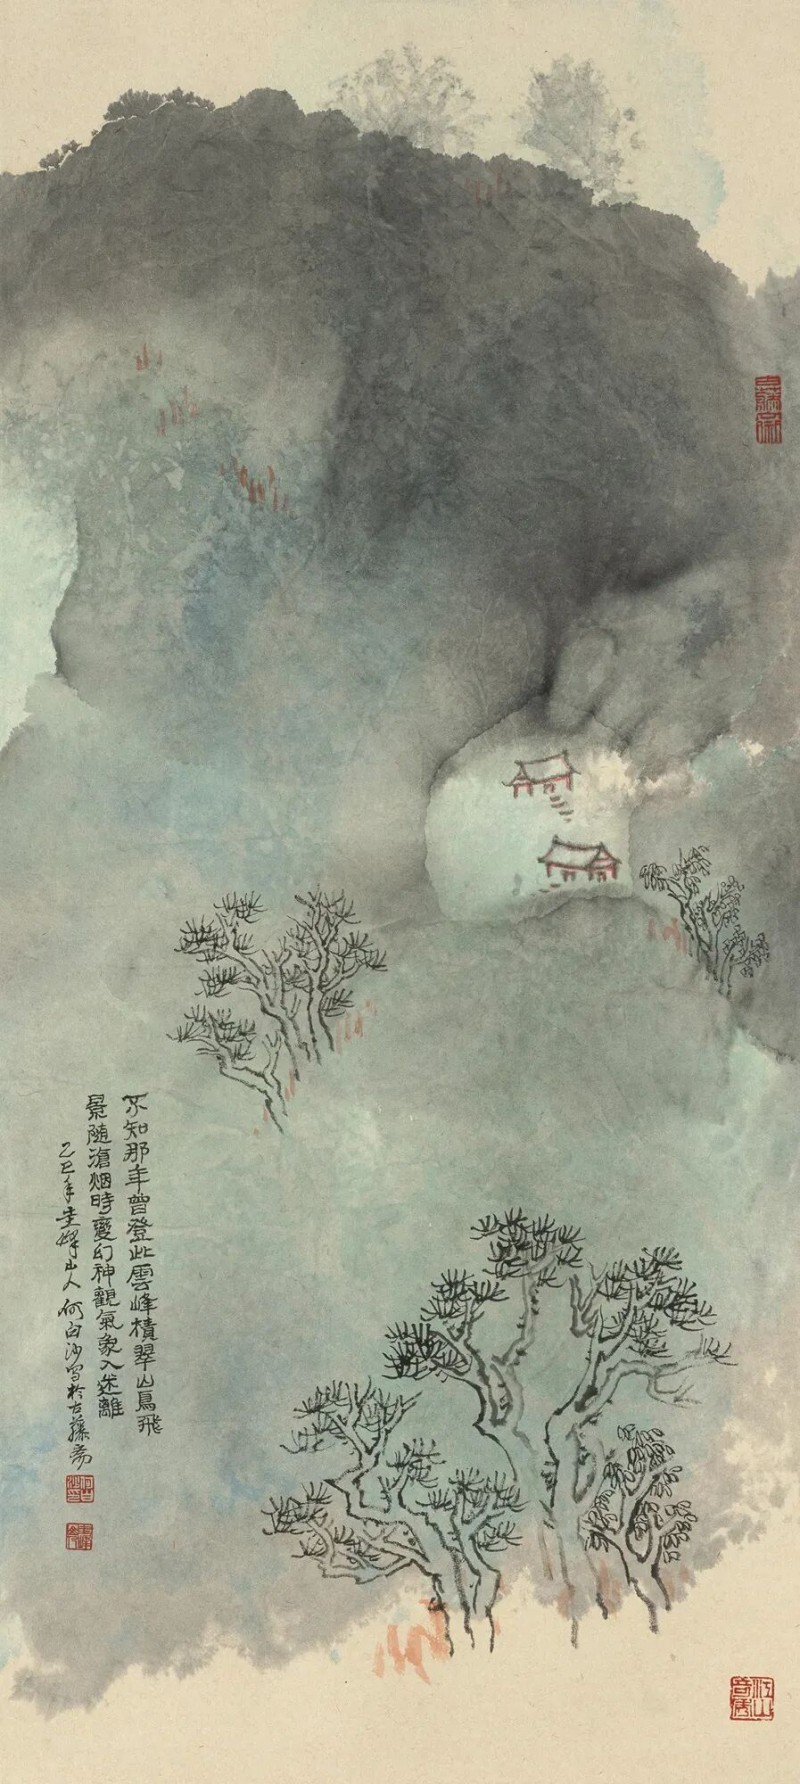 不知那年曾登此雲峰積翠山鳥飛
景随滄烟時變幻神觀氣象入迷離
乙巳年圭峰山人何白沙寫於古藤斋